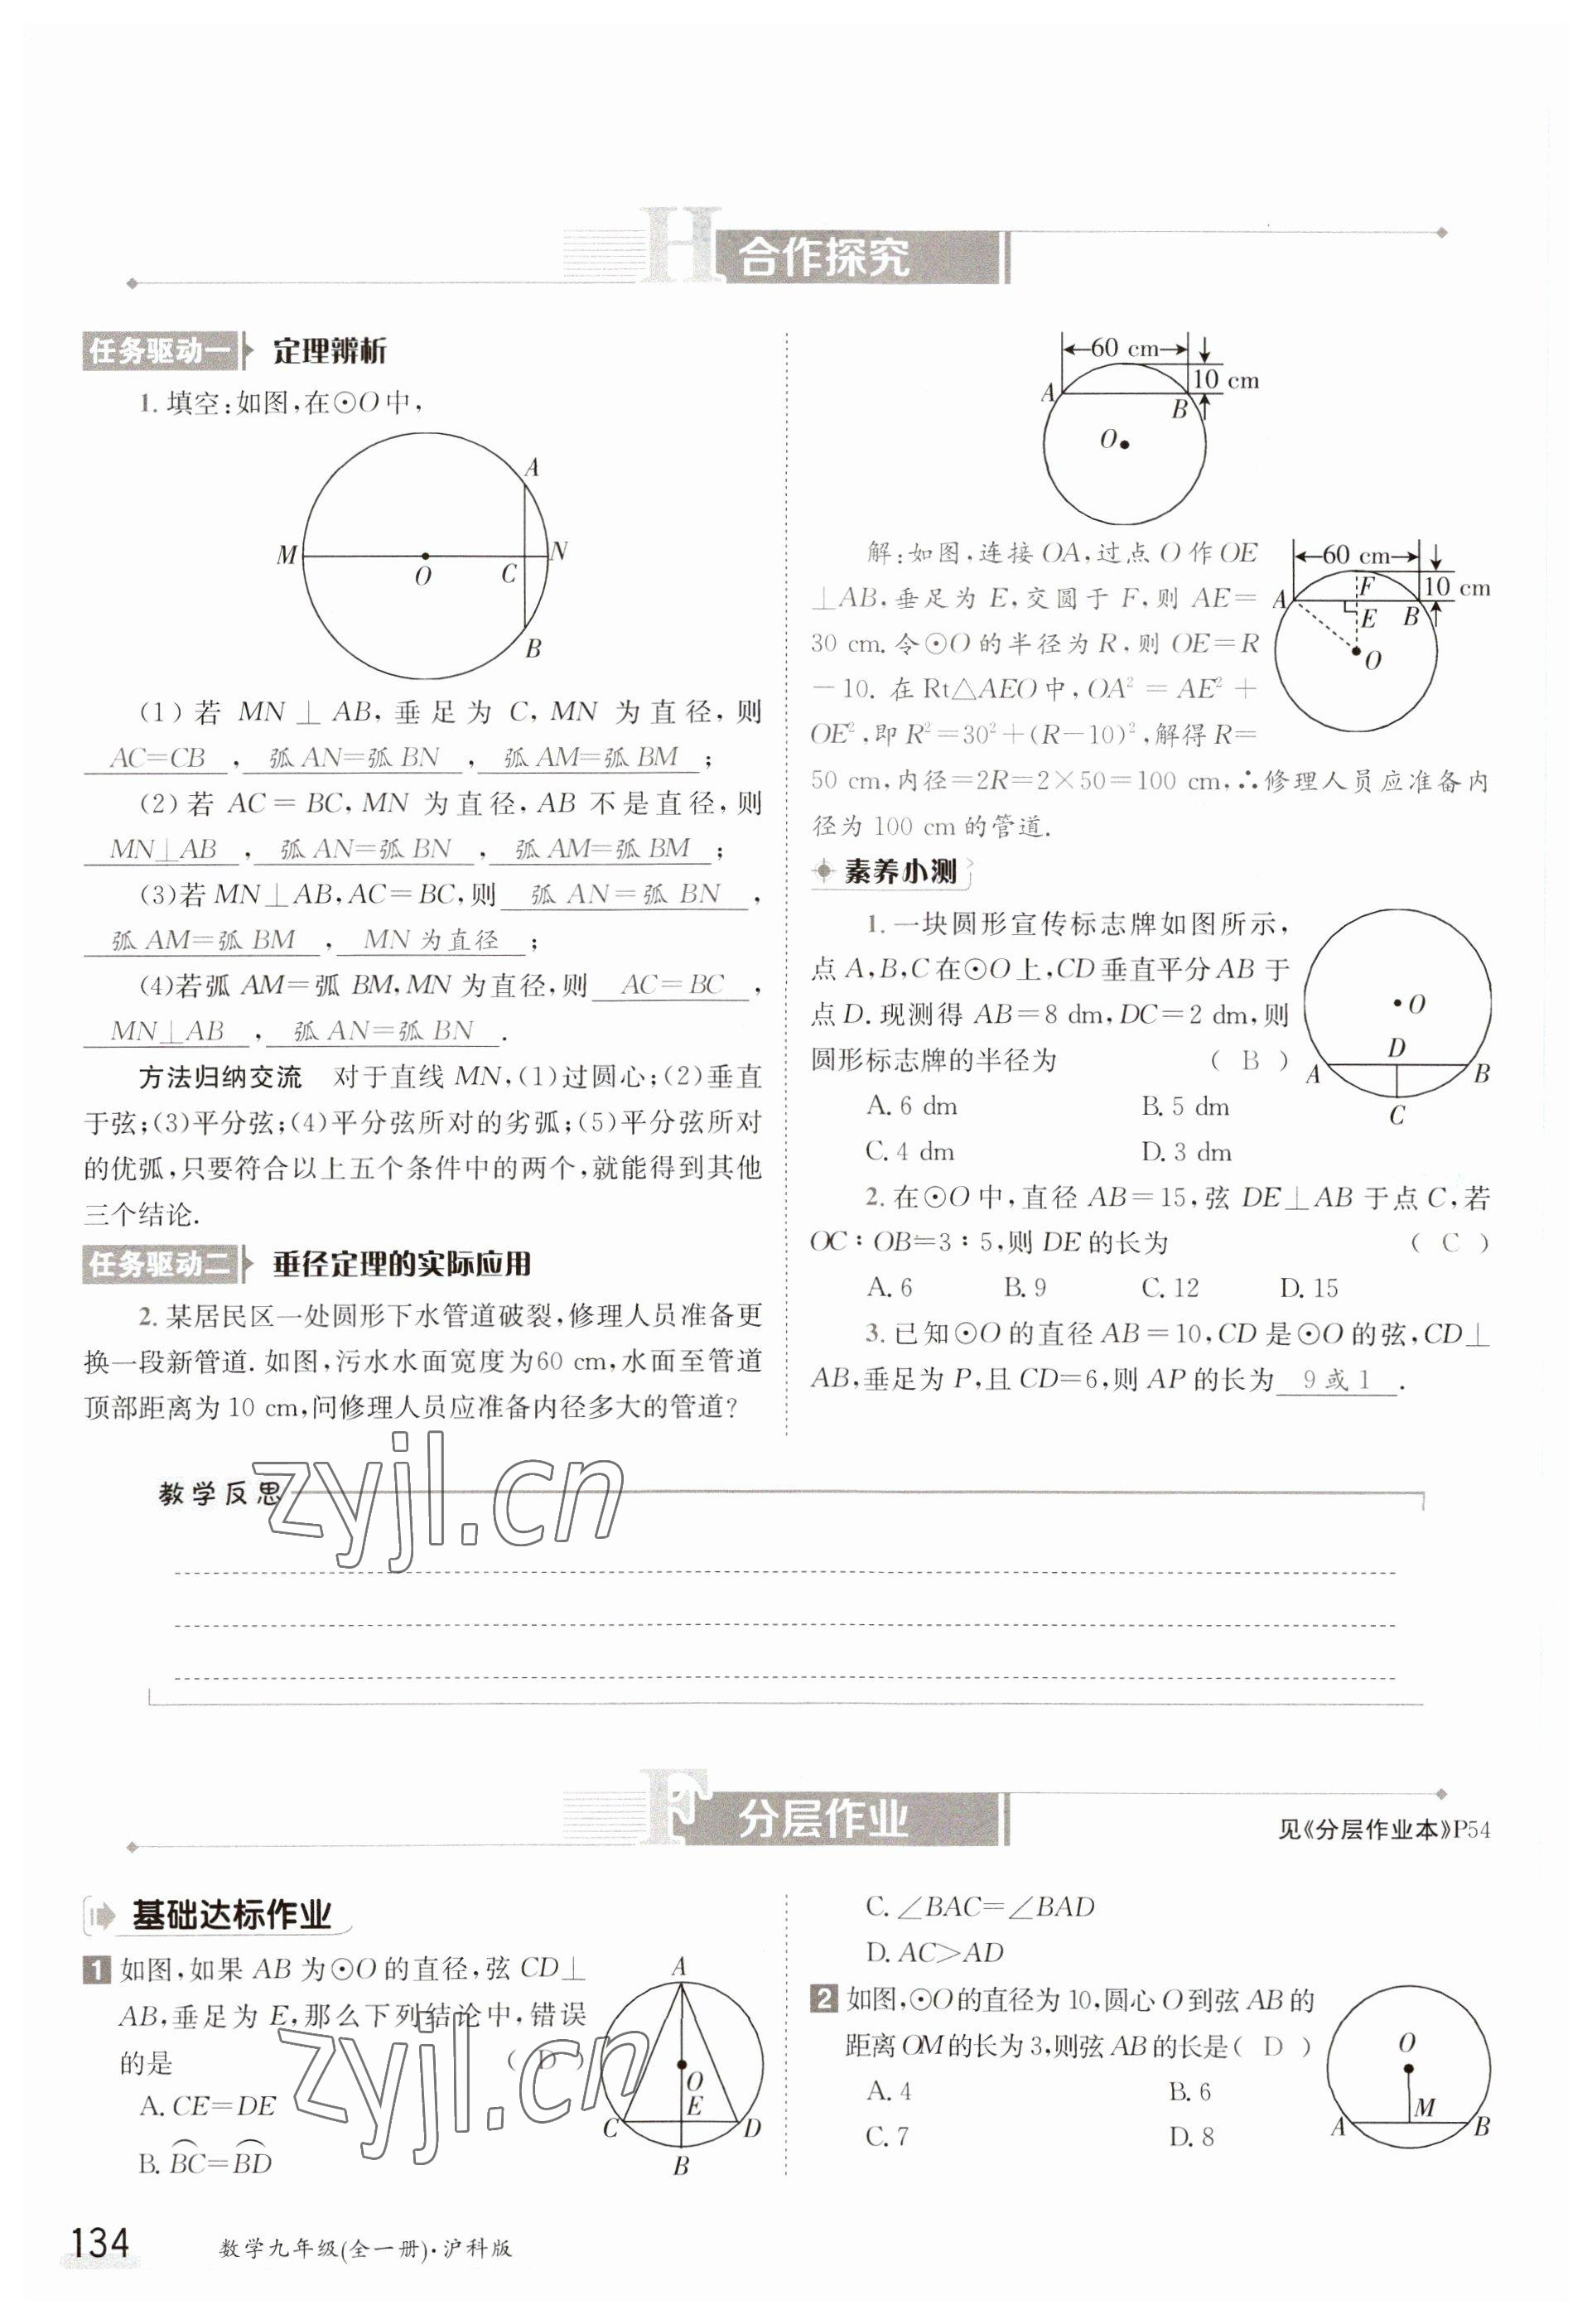 H 合作探究
任务驱动一 定理辨析
1. 填空:如图,在⊙O中,
A
M
O
C
N
B
(1) 若 MN ⊥ AB, 垂足为 C, MN 为直径, 则
AC=CB , 弧 AN=弧 BN , 弧 AM=弧 BM ;
(2) 若 AC = BC, MN 为直径, AB 不是直径, 则
MN⊥AB , 弧 AN=弧 BN , 弧 AM=弧 BM ;
(3)若 MN⊥AB, AC=BC,则 弧 AN=弧 BN ,
弧 AM=弧 BM , MN 为直径 ;
(4)若弧 AM=弧 BM, MN 为直径,则 AC=BC ,
MN⊥AB , 弧 AN=弧 BN .
方法归纳交流 对于直线 MN,(1)过圆心;(2)垂直
于弦;(3)平分弦;(4)平分弦所对的劣弧;(5)平分弦所对
的优弧,只要符合以上五个条件中的两个,就能得到其他
三个结论.
任务驱动二 垂径定理的实际应用
2. 某居民区一处圆形下水管道破裂,修理人员准备更
换一段新管道. 如图,污水水面宽度为60 cm,水面至管道
顶部距离为 10 cm,问修理人员应准备内径多大的管道?
60 cm
10 cm
A
B
O
解:如图,连接 OA,过点 O 作 OE
⊥AB,垂足为 E,交圆于 F,则 AE=
30 cm. 令⊙O 的半径为 R,则 OE=R
-10. 在 Rt△AEO 中, OA² = AE² +
OE²,即 R²=30²+(R-10)²,解得 R=
50 cm,内径=2R=2×50=100 cm,∴修理人员应准备内
径为 100 cm 的管道.
60 cm
10 cm
F
A
E
B
O
素养小测
1. 一块圆形宣传标志牌如图所示,
点 A,B,C 在⊙O 上,CD 垂直平分 AB 于
点 D. 现测得 AB=8 dm, DC=2 dm,则
圆形标志牌的半径为 ( B )
A. 6 dm B. 5 dm
C. 4 dm D. 3 dm
O
D
A
B
C
2. 在⊙O 中,直径 AB=15,弦 DE⊥AB 于点 C,若
OC∶OB=3∶5,则 DE 的长为 ( C )
A. 6 B. 9 C. 12 D. 15
3. 已知⊙O 的直径 AB=10,CD 是⊙O 的弦,CD⊥
AB,垂足为 P,且 CD=6,则 AP 的长为 9 或 1 .
教学反思
zyjl.cn
F 分层作业
见《分层作业本》P54
基础达标作业
1 如图,如果 AB 为⊙O 的直径,弦 CD⊥
AB,垂足为 E,那么下列结论中,错误
的是 ( D )
A. CE=DE
B. B͡C=B͡D
A
O
E
C
D
B
zyjl.cn
C. ∠BAC=∠BAD
D. AC>AD
2 如图,⊙O的直径为 10,圆心 O到弦 AB 的
距离 OM的长为 3,则弦 AB 的长是( D )
A. 4 B. 6
C. 7 D. 8
O
M
A
B
134 数学九年级(全一册)·沪科版